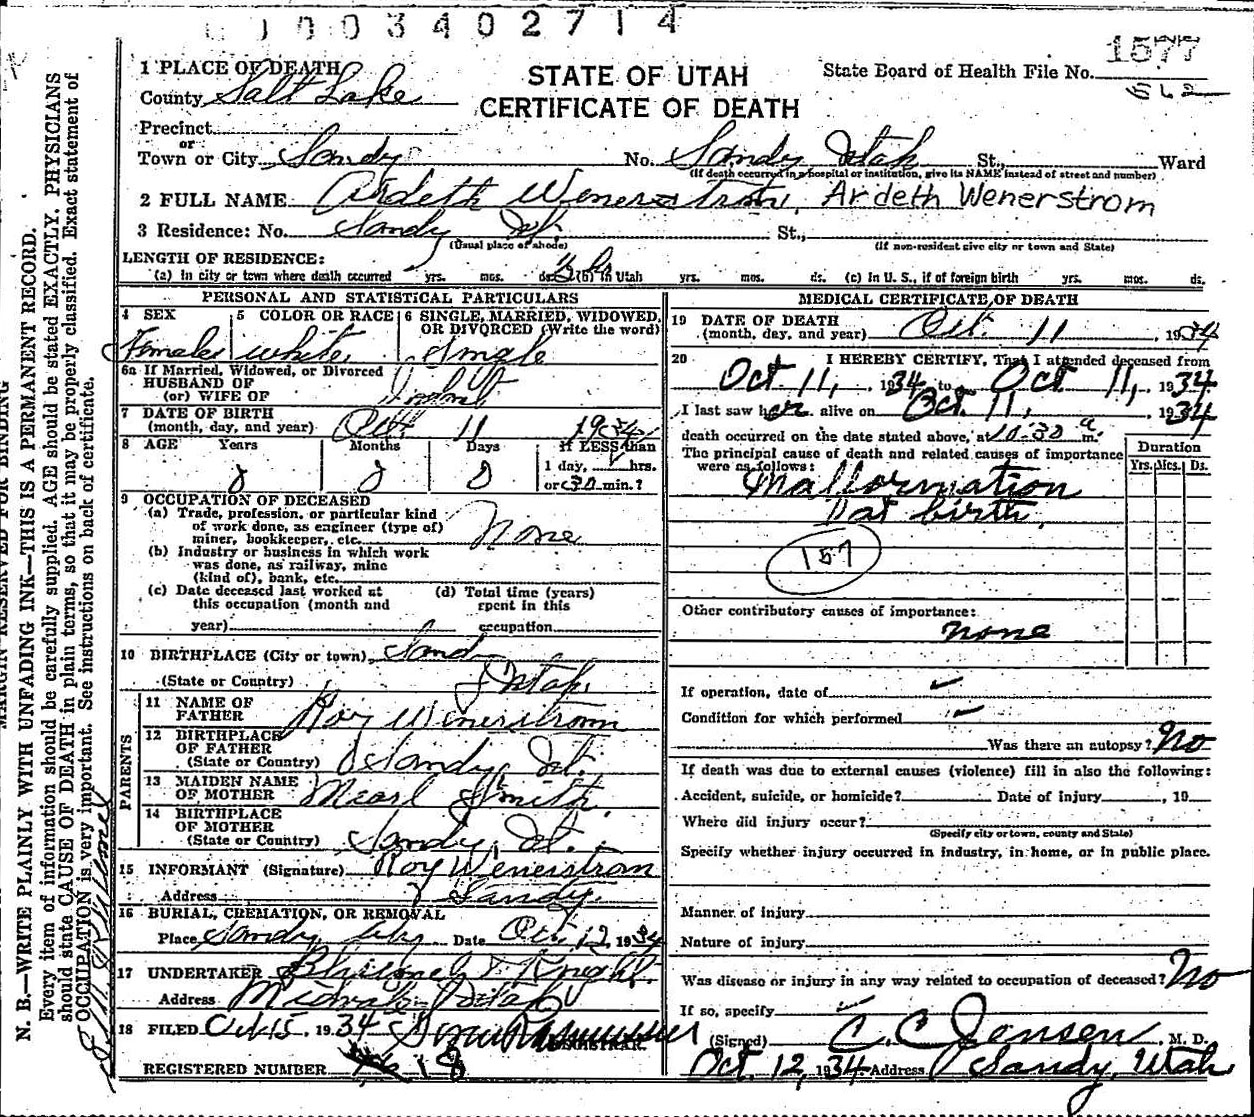 0003402714
1577
562
STATE OF UTAH
CERTIFICATE OF DEATH
State Board of Health File No.
1 PLACE OF DEATH
County Salt Lake
Precinct
or
Town or City Sandy No. Sandy Utah St., Ward
(If death occurred in a hospital or institution, give its NAME instead of street and number)
2 FULL NAME Ardeth Wenerstrom, Ardeth Wenerstrom
3 Residence: No. Sandy Ut. St.,
(Usual place of abode) (If non-resident give city or town and State)
LENGTH OF RESIDENCE:
(a) In city or town where death occurred yrs. mos. ds. (b) In Utah yrs. mos. ds. (c) In U. S., if of foreign birth yrs. mos. ds.
PERSONAL AND STATISTICAL PARTICULARS
4 SEX 5 COLOR OR RACE 6 SINGLE, MARRIED, WIDOWED, OR DIVORCED (Write the word)
Female white Single
6a If Married, Widowed, or Divorced
HUSBAND OF
(or) WIFE OF Infant
7 DATE OF BIRTH
(month, day, and year) Oct. 11 1934
8 AGE Years Months Days If LESS than
1 day, hrs.
0 0 0 or 30 min.?
9 OCCUPATION OF DECEASED
(a) Trade, profession, or particular kind
of work done, as engineer (type of)
miner, bookkeeper, etc. None
(b) Industry or business in which work
was done, as railway, mine
(kind of), bank, etc.
(c) Date deceased last worked at
this occupation (month and
year)
(d) Total time (years)
spent in this
occupation
10 BIRTHPLACE (City or town) Sandy
(State or Country) Utah.
PARENTS
11 NAME OF
FATHER Roy Wenerstrom
12 BIRTHPLACE
OF FATHER
(State or Country) Sandy, Ut.
13 MAIDEN NAME
OF MOTHER Mearl Smith
14 BIRTHPLACE
OF MOTHER
(State or Country) Sandy, Ut.
15 INFORMANT (Signature) Roy Wenerstrom
Address Sandy.
16 BURIAL, CREMATION, OR REMOVAL
Place Sandy City Date Oct. 12, 1934
17 UNDERTAKER
Address Midvale Utah
18 FILED Oct 15, 1934
REGISTRAR.
REGISTERED NUMBER 18
MEDICAL CERTIFICATE OF DEATH
19 DATE OF DEATH
(month, day, and year) Oct. 11, 1934
20 I HEREBY CERTIFY, That I attended deceased from
Oct 11, 1934 to Oct. 11, 1934
I last saw her alive on Oct. 11, 1934
death occurred on the date stated above, at 10:30 a m.
The principal cause of death and related causes of importance
were as follows:
Duration
Yrs. Mos. Ds.
Malformation
at birth
157
Other contributory causes of importance:
none
If operation, date of
Condition for which performed
Was there an autopsy? No
If death was due to external causes (violence) fill in also the following:
Accident, suicide, or homicide? Date of injury , 19
Where did injury occur?
(Specify city or town, county and State)
Specify whether injury occurred in industry, in home, or in public place.
Manner of injury
Nature of injury
Was disease or injury in any way related to occupation of deceased? No
If so, specify
(Signed) C. C. Jensen, M. D.
Oct. 12, 1934 Address Sandy, Utah
MARGIN RESERVED FOR BINDING
N. B.—WRITE PLAINLY WITH UNFADING INK—THIS IS A PERMANENT RECORD.
Every item of information should be carefully supplied. AGE should be stated EXACTLY. PHYSICIANS
should state CAUSE OF DEATH in plain terms, so that it may be properly classified. Exact statement of
OCCUPATION is very important. See instructions on back of certificate.